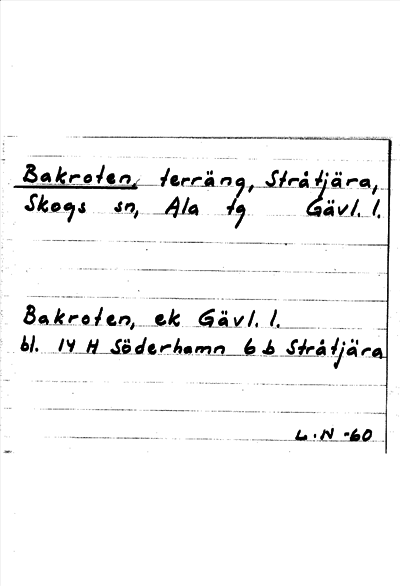 Bakroten, terräng, Stråtjära,
Skogs sn, Ala tg Gävl. l.
Bakroten, ek Gävl. l.
bl. 14 H Söderhamn 6 b Stråtjära
L.N -60